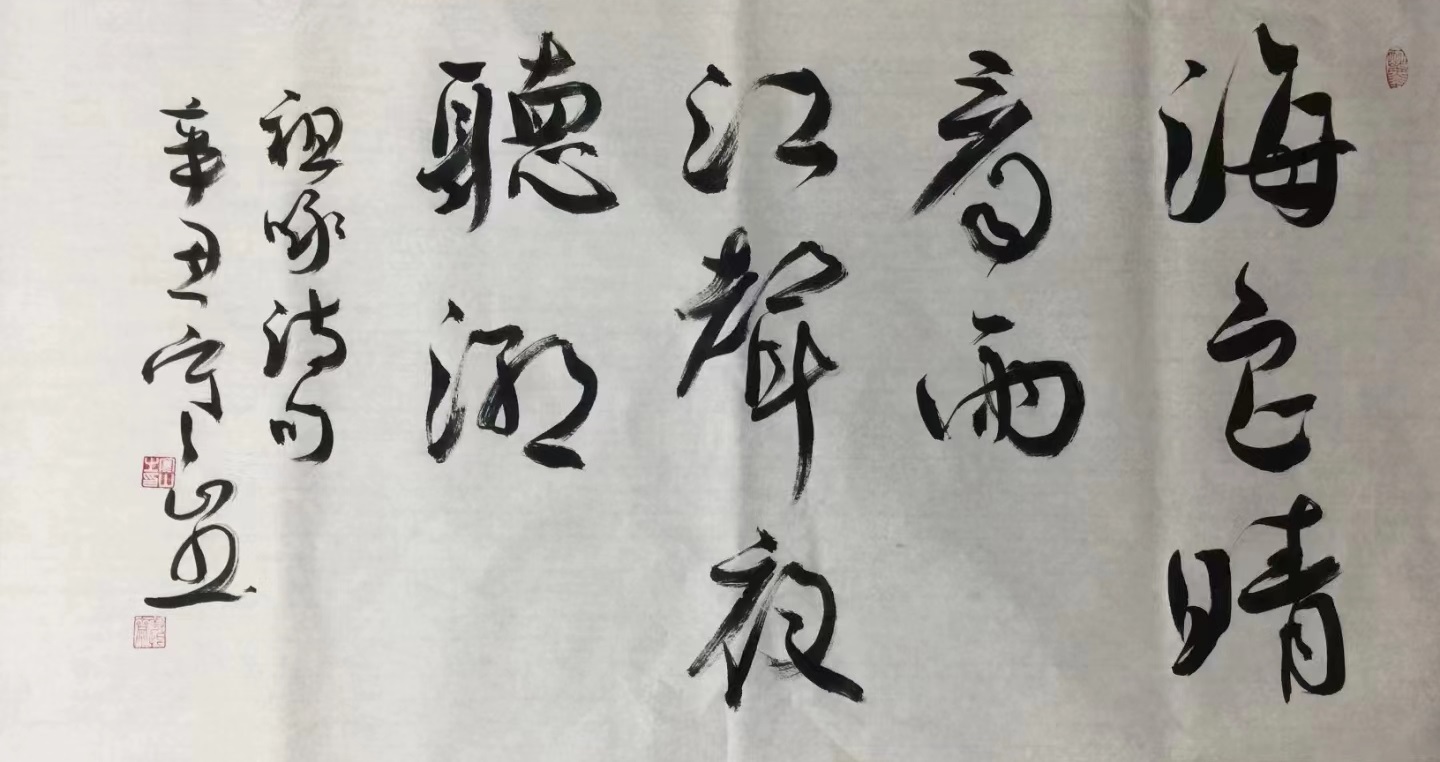 海色晴
看雨
江聲夜
聽潮
祖咏诗句
辛丑